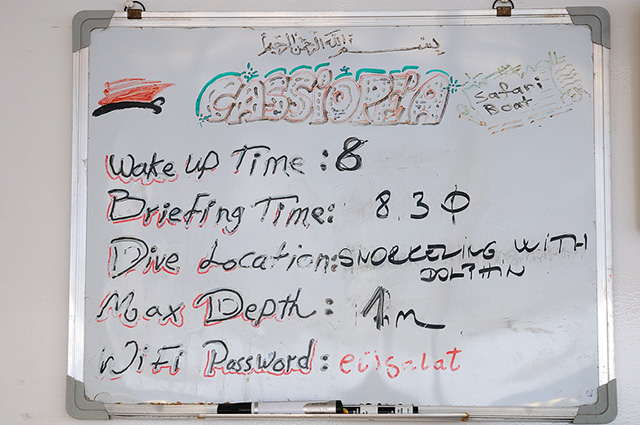 بسم الله الرحمن الرحيم
CASSIOPEIA
Safari
Boat
Wake up Time : 8
Briefing Time: 8.30
Dive Location: SNORKELING WITH
DOLPHIN
Max Depth : 1m
WiFi Password :